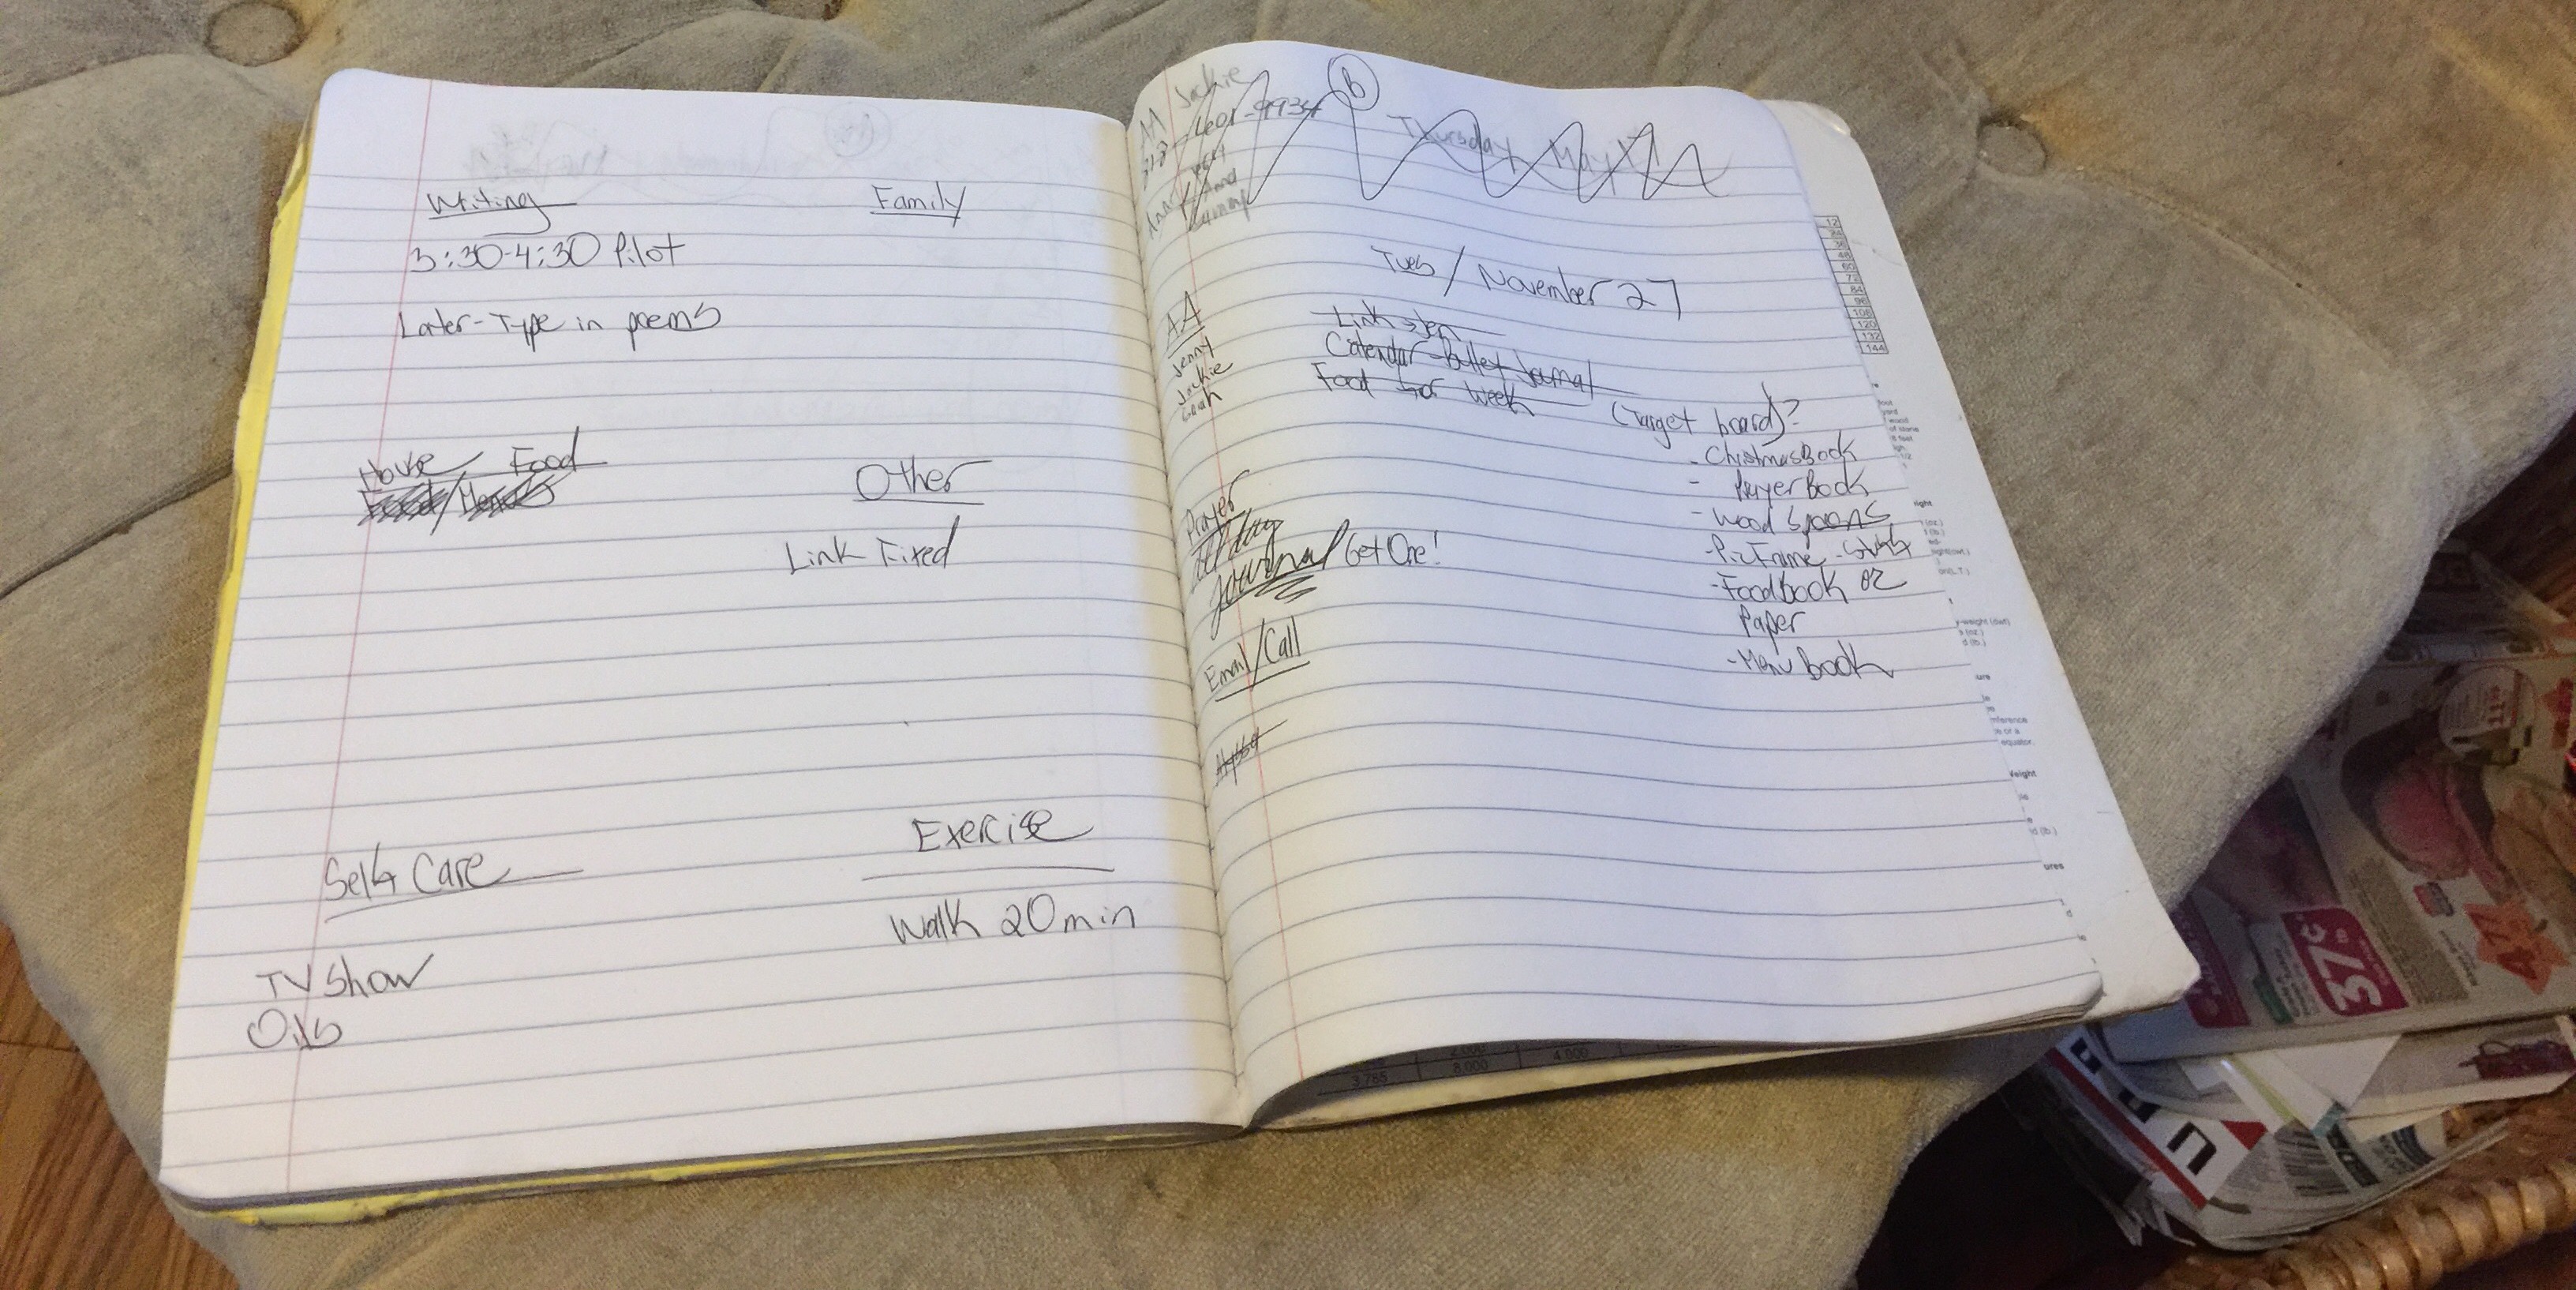 Writing
3:30-4:30 Pilot
Later-Type in poems
Family
House Food
Food/Menus
Other
Link Fixed
Self Care
TV Show
Oils
Exercise
Walk 20 min
AA Jackie
B
Thursday May 17
Tues/November 27
Link → Jen
Calendar-bullet Journal
Food for week
AA
Jenny
Jackie
Leah
(Target board)?
- ChistmasBook
- PrayerBook
- wood spoons
- Pic Frame -
- Foodbook or
Paper
- Menu Book
Prayer
Journal Get One!
Email/Call
12
24
36
48
60
72
84
96
108
120
132
144
3.785
8.000
4.000
37¢
477